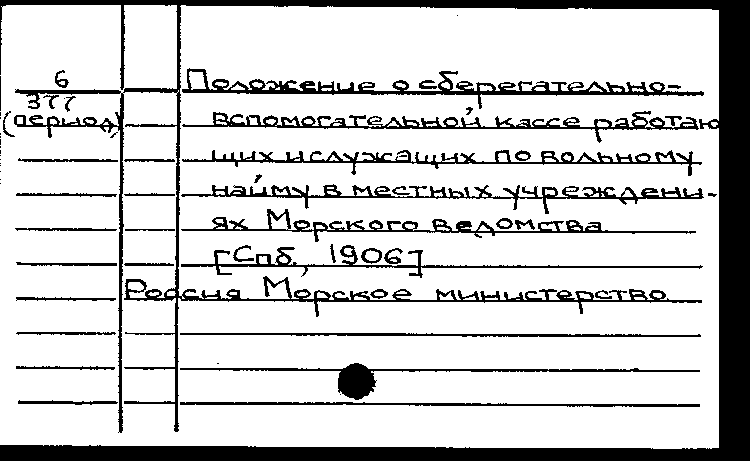 6
377
(период)
Положение о сберегательно-
вспомогательной кассе работаю
щих и служащих по вольному
найму в местных учреждени-
ях Морского ведомства
[Спб., 1906]
Россия Морское министерство